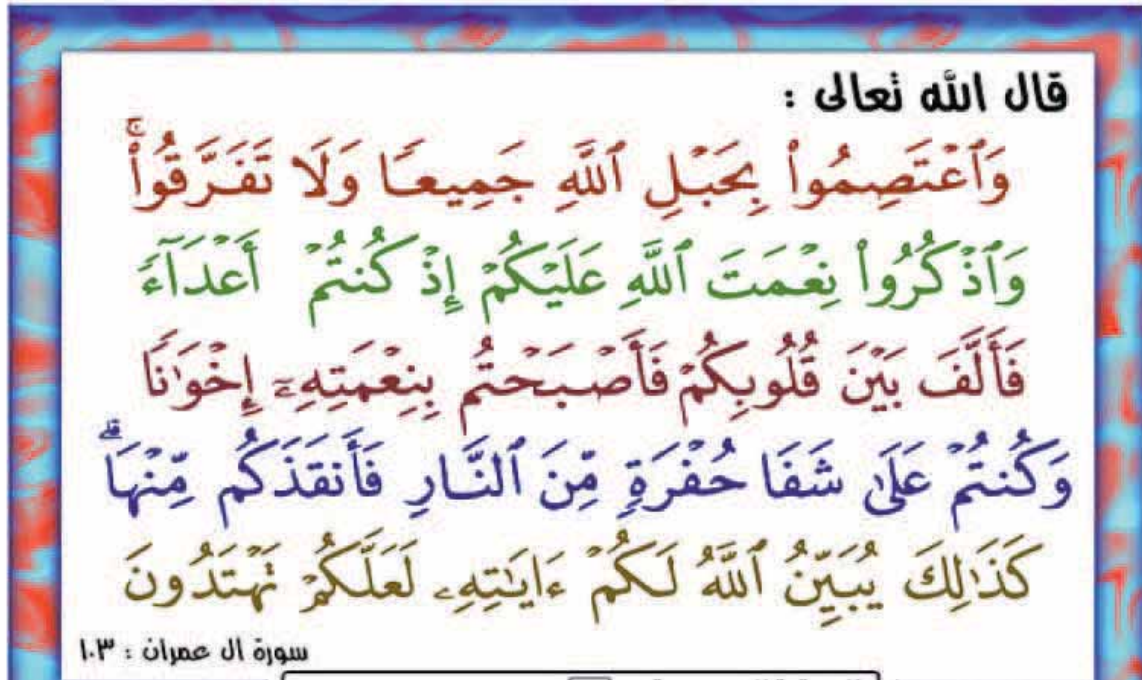 قال الله تعالى :
وَٱعْتَصِمُوا۟ بِحَبْلِ ٱللَّهِ جَمِيعًا وَلَا تَفَرَّقُوا۟ ۚ
وَٱذْكُرُوا۟ نِعْمَتَ ٱللَّهِ عَلَيْكُمْ إِذْ كُنتُمْ أَعْدَآءً
فَأَلَّفَ بَيْنَ قُلُوبِكُمْ فَأَصْبَحْتُم بِنِعْمَتِهِۦٓ إِخْوَٰنًا
وَكُنتُمْ عَلَىٰ شَفَا حُفْرَةٍ مِّنَ ٱلنَّارِ فَأَنقَذَكُم مِّنْهَا ۗ
كَذَٰلِكَ يُبَيِّنُ ٱللَّهُ لَكُمْ ءَايَٰتِهِۦ لَعَلَّكُمْ تَهْتَدُونَ
سورة آل عمران : ١٠٣